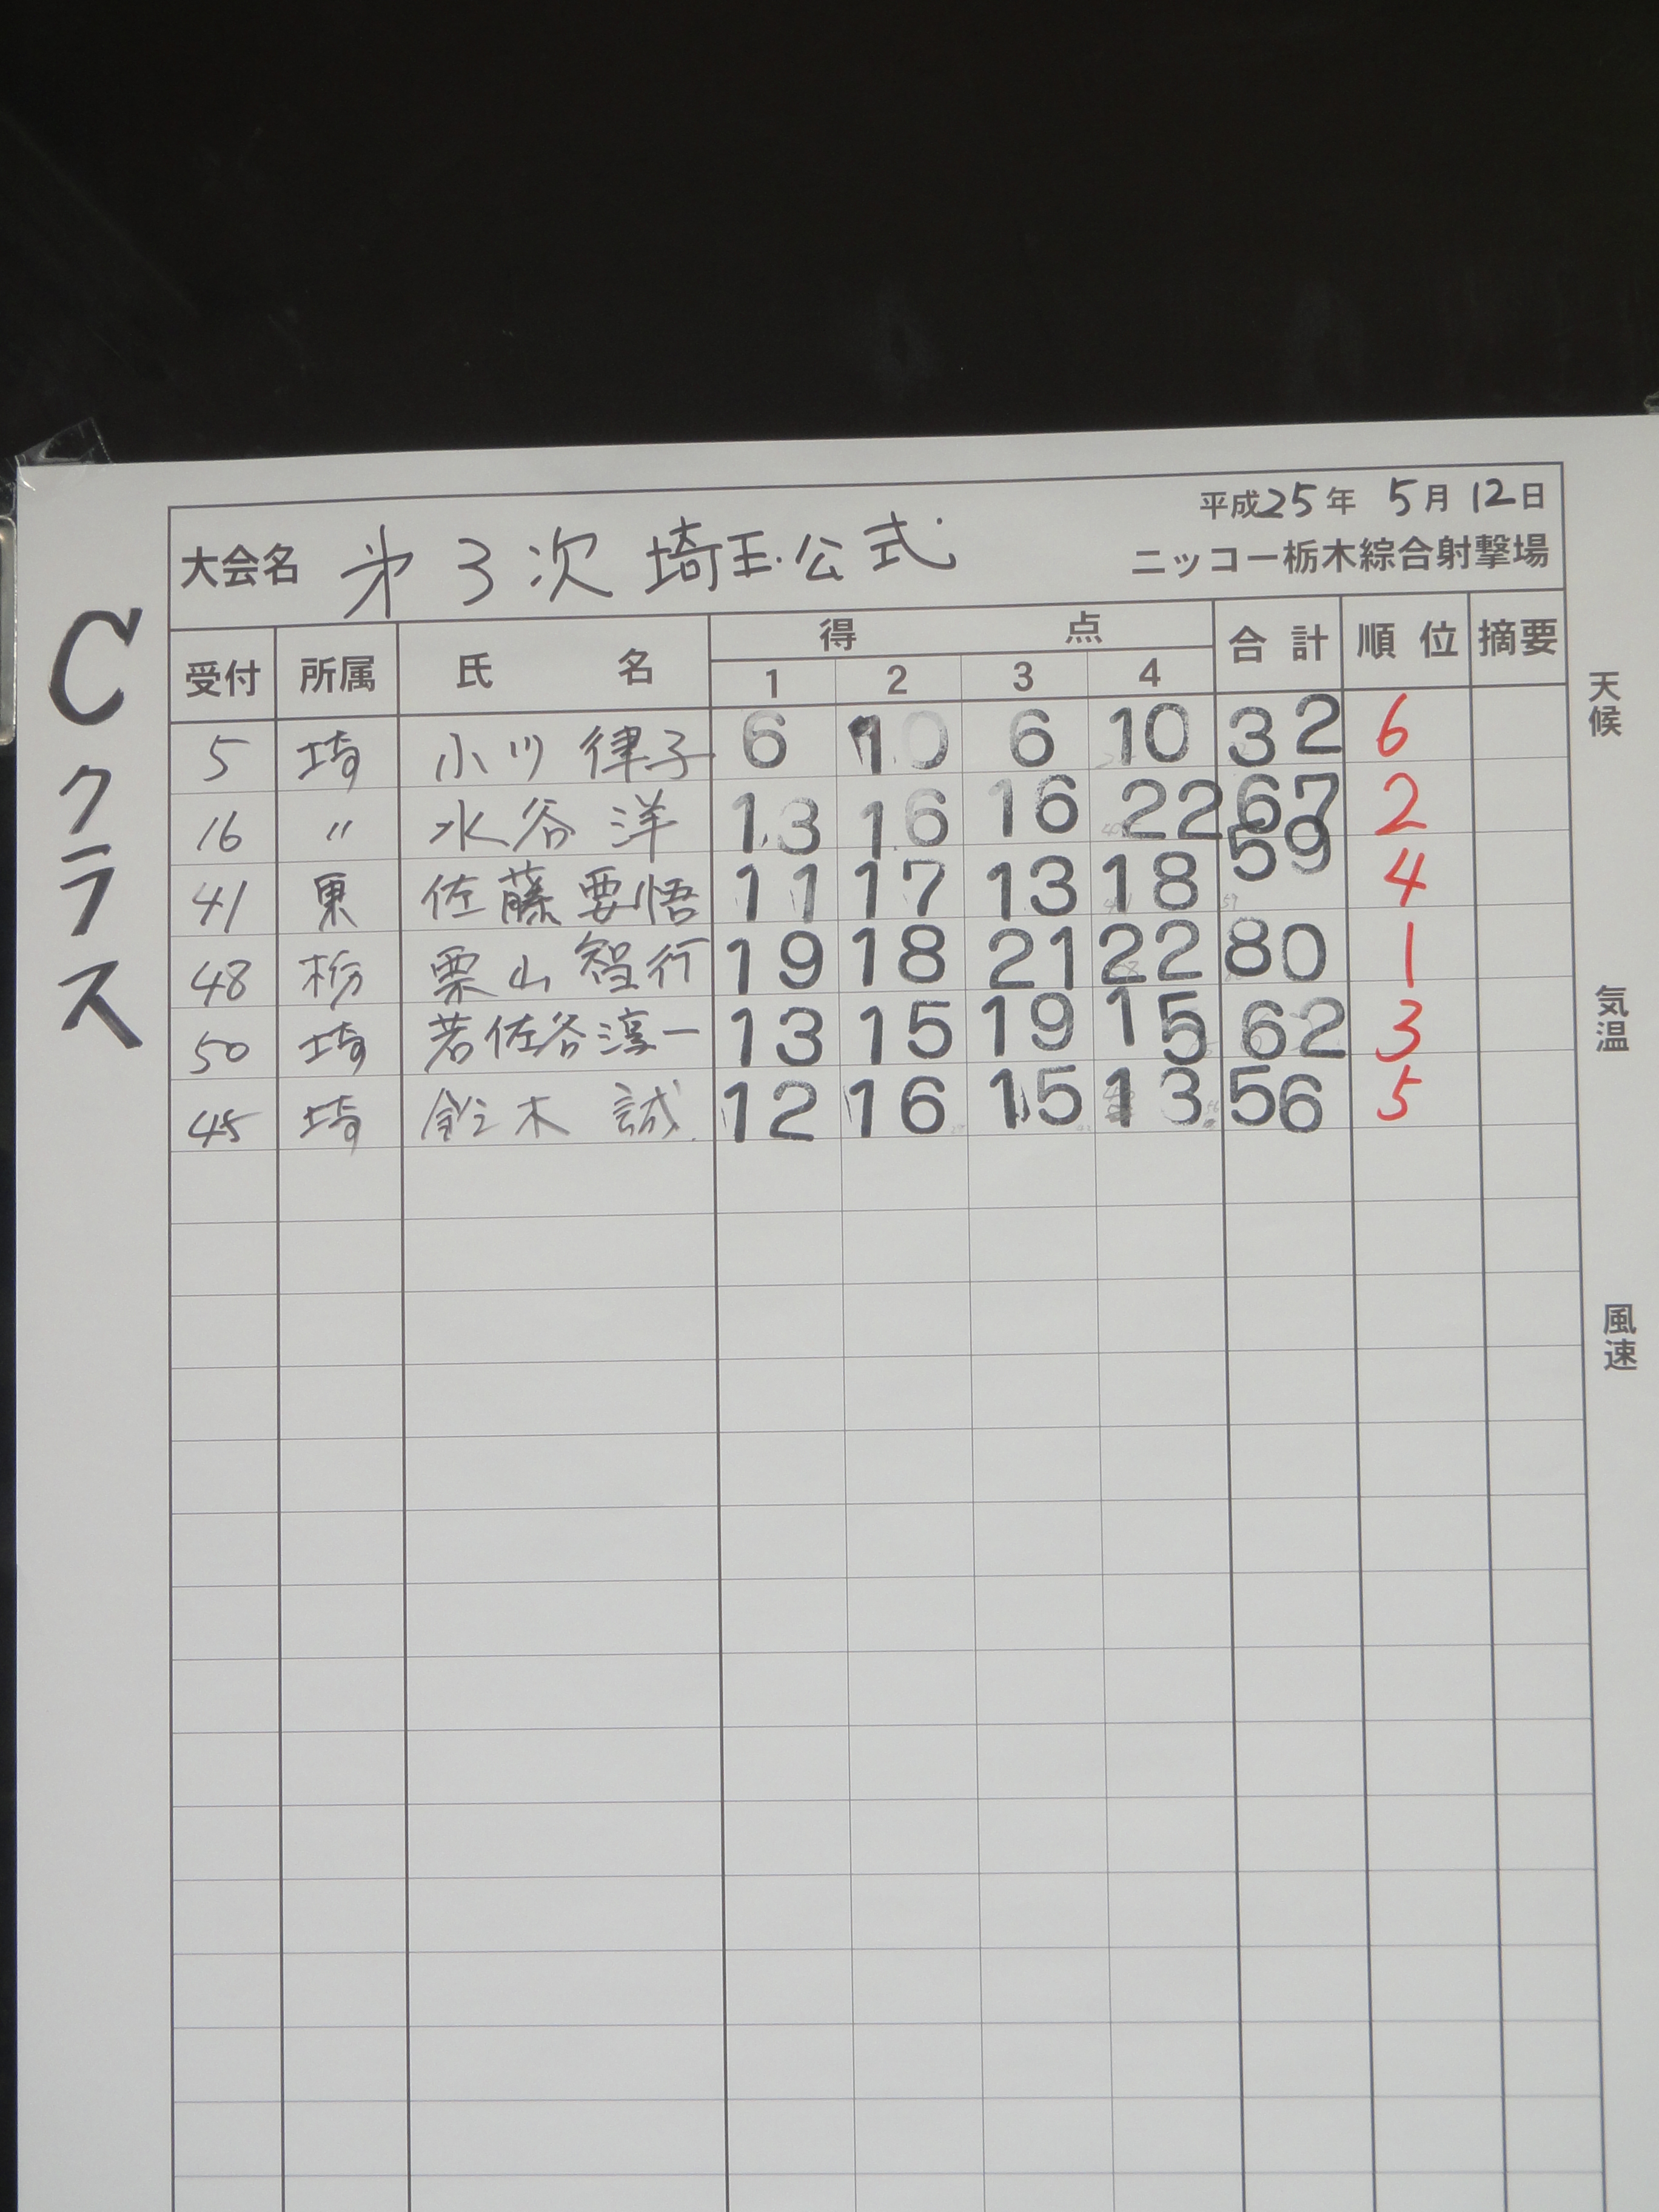 平成25年 5月12日
大会名 第3次 埼玉公式 ニッコー栃木綜合射撃場
Cクラス
受付 所属 氏名 得点 合計 順位 摘要
1 2 3 4
5 埼 小川 律子 6 10 6 10 32 6
16 〃 水谷 洋 13 16 16 22 67 2
41 東 佐藤 要悟 11 17 13 18 59 4
48 栃 栗山 智行 19 18 21 22 80 1
50 埼 若佐谷淳一 13 15 19 15 62 3
45 埼 鈴木 誠 12 16 15 13 56 5
天候
気温
風速